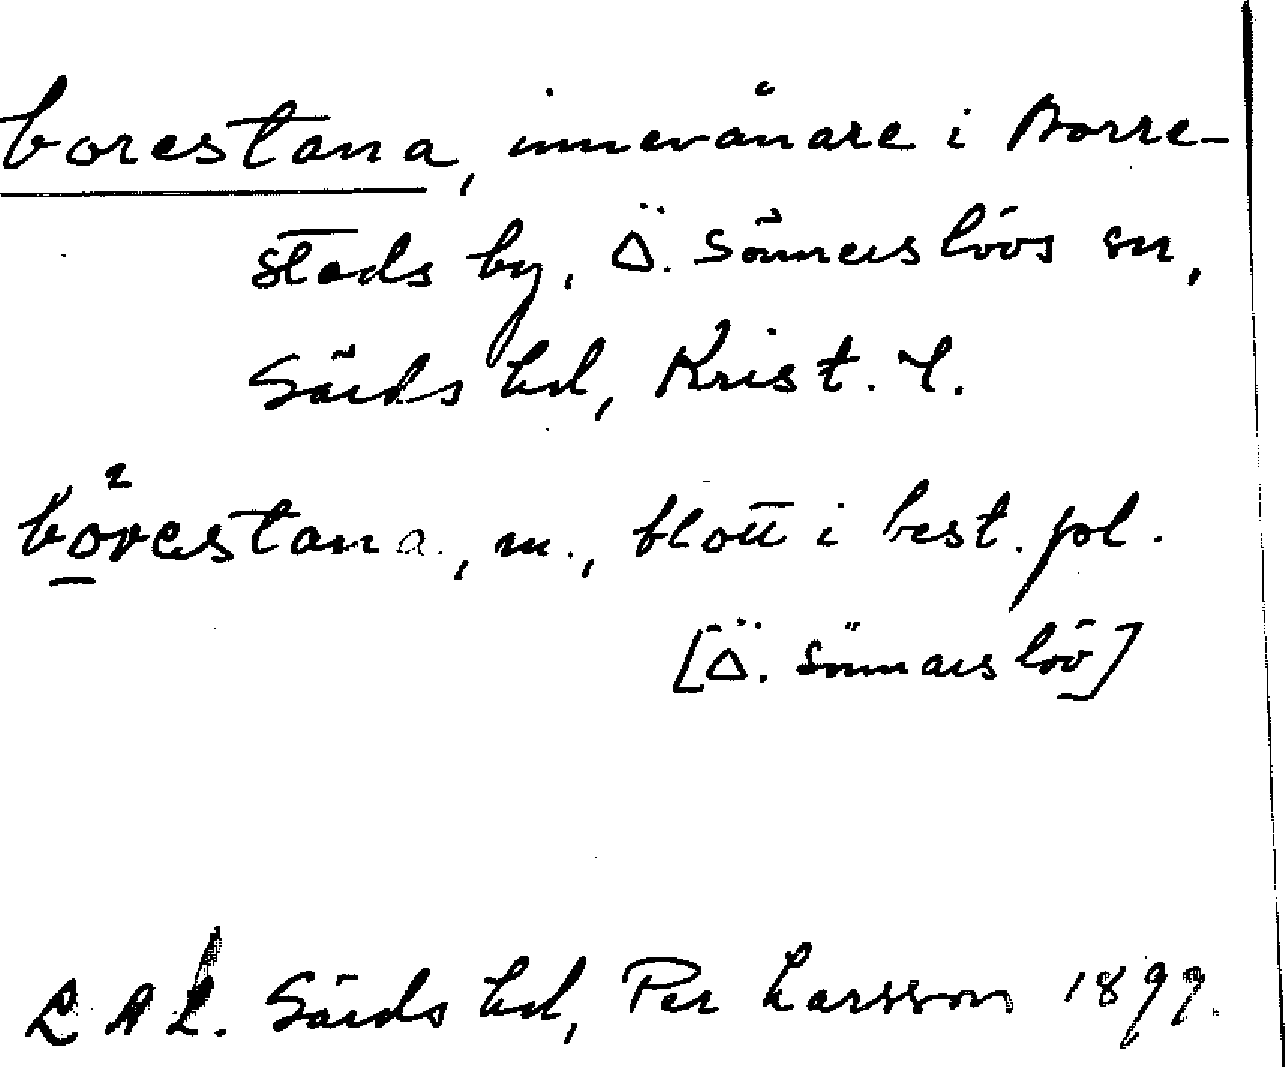 borestana, innevånare i Borre-
stads by, Ö. Sönnerslövs sn,
Gärds hd, Krist. l.
bo²restana, m., blott i best. pl.
[Ö. Sönnarslöv]
L A L. Gärds hd, Per Larsson 1899.